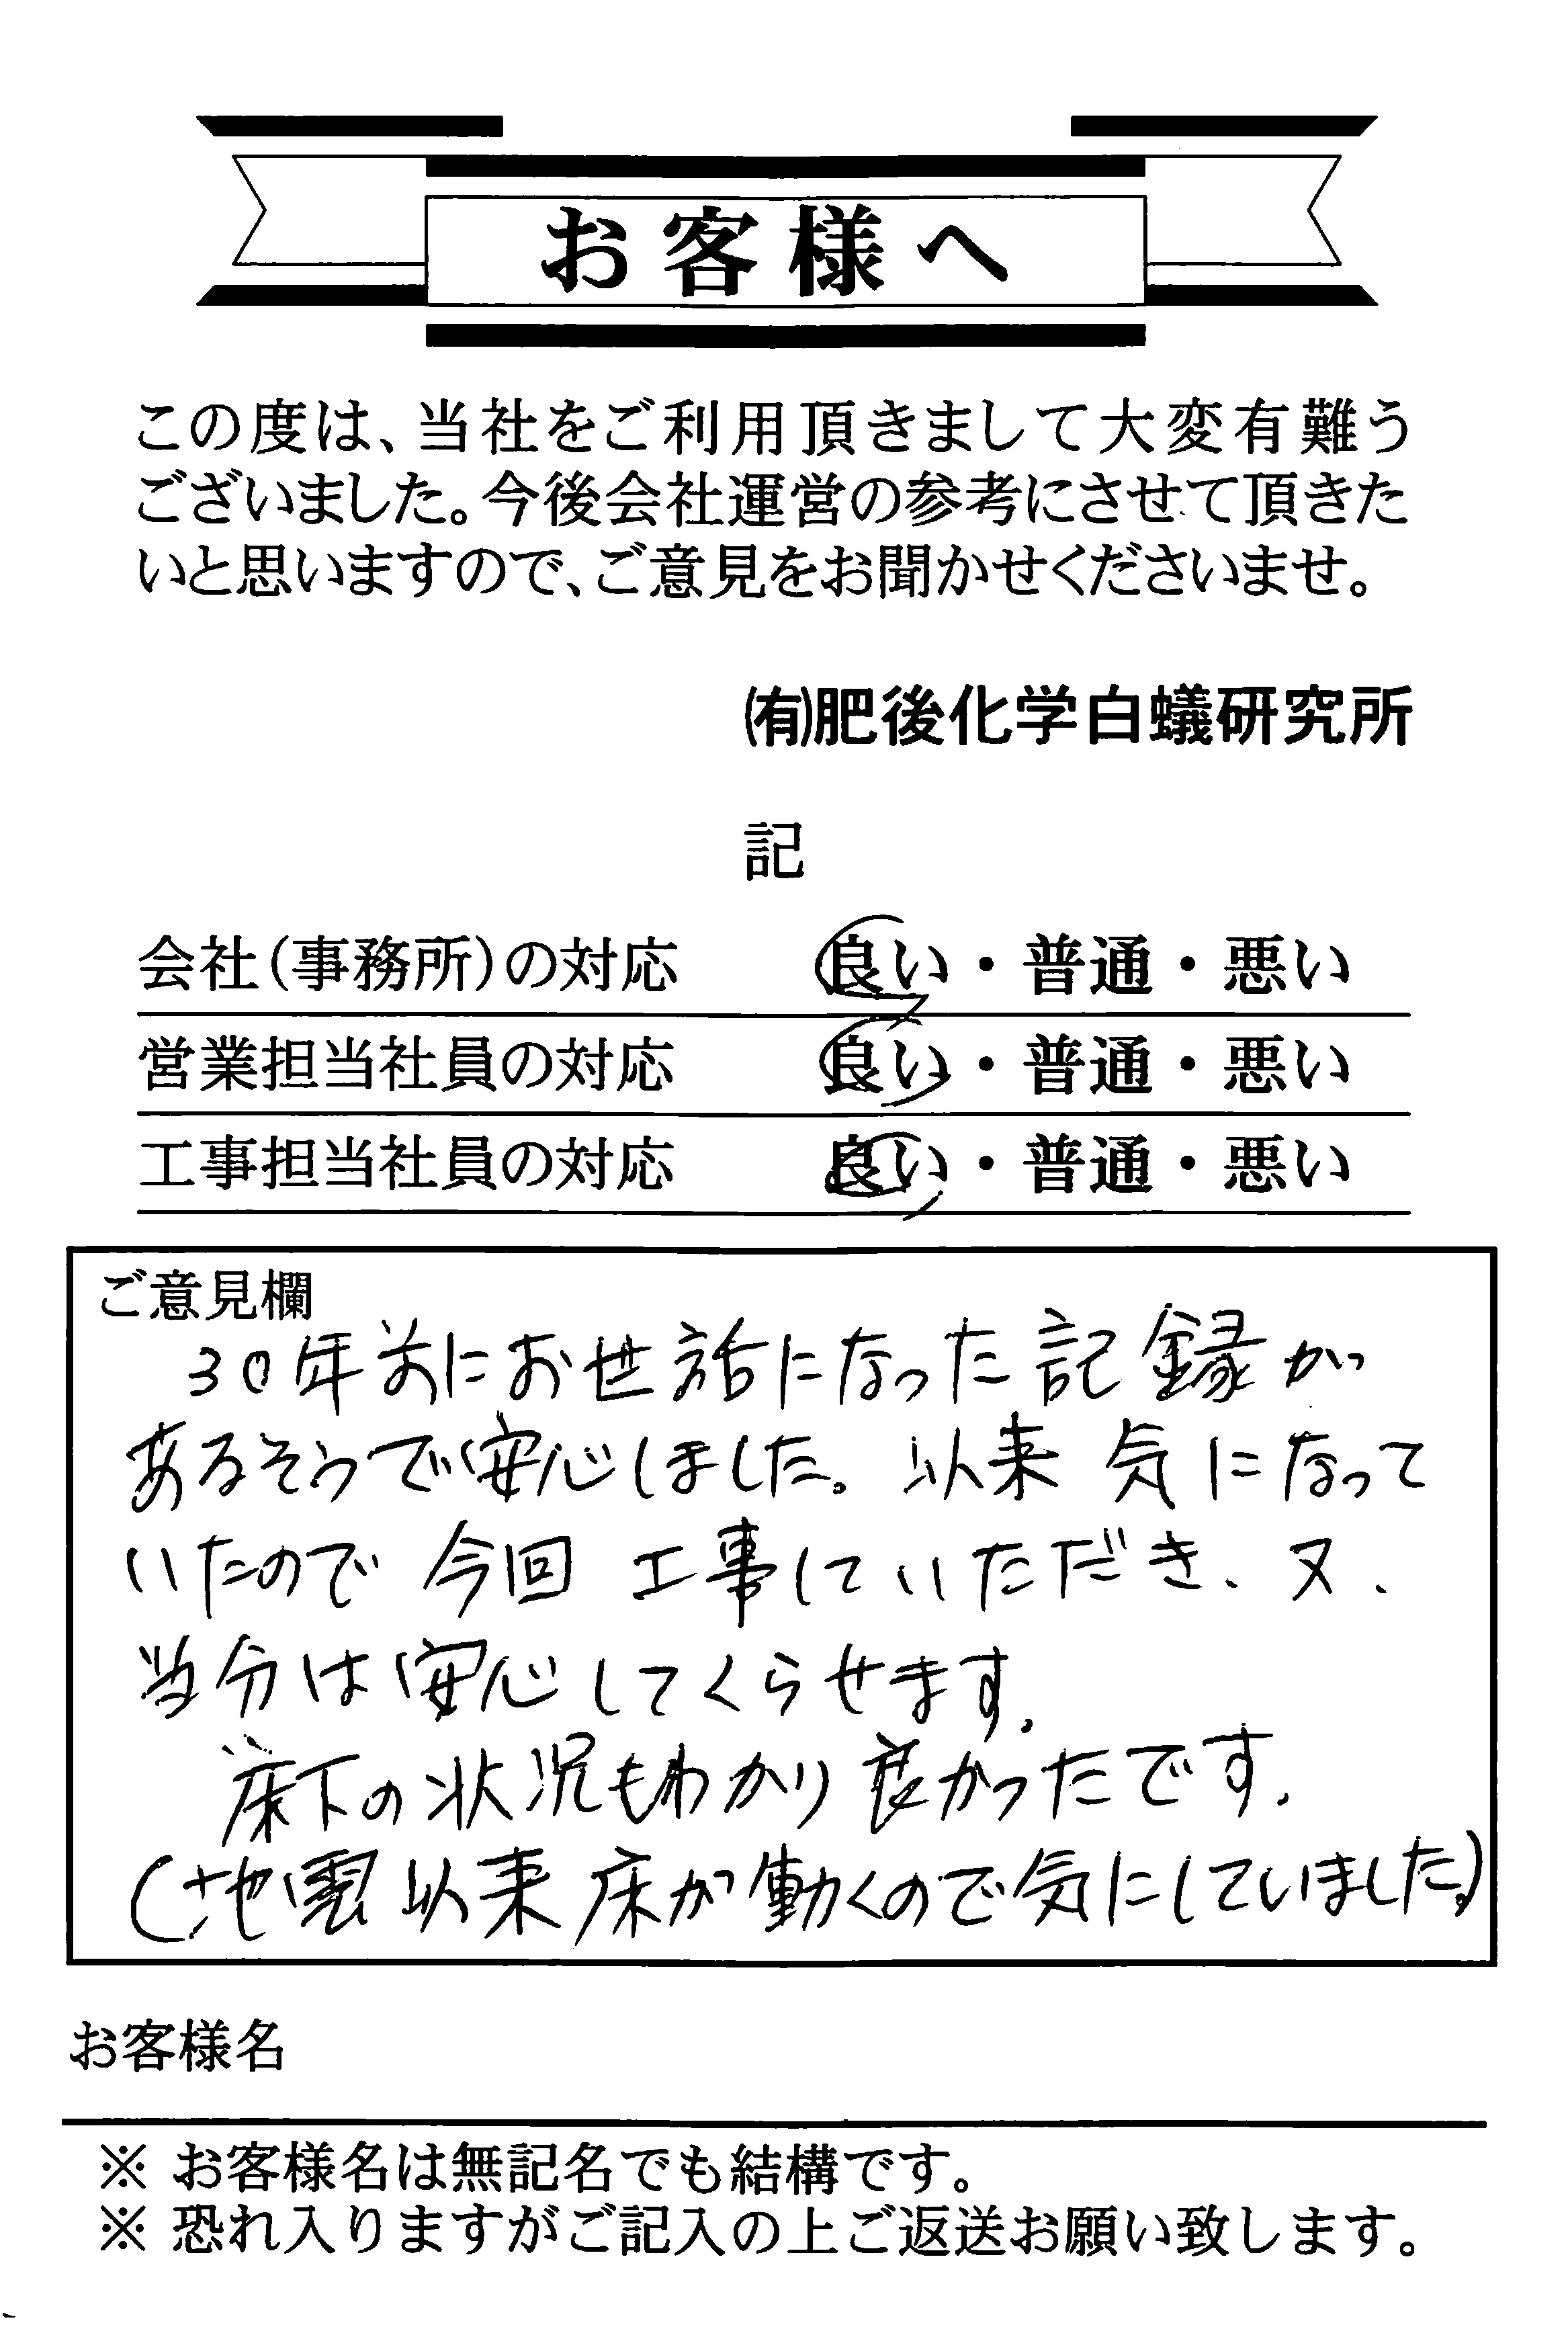 お客様へ
この度は、当社をご利用頂きまして大変有難う
ございました。今後会社運営の参考にさせて頂きた
いと思いますので、ご意見をお聞かせくださいませ。
㈲肥後化学白蟻研究所
記
会社(事務所)の対応　良い・普通・悪い
営業担当社員の対応　良い・普通・悪い
工事担当社員の対応　良い・普通・悪い
ご意見欄
30年前にお世話になった記録が
あるそうで安心しました。以来 気になって
いたので 今回 工事していただき、又、
当分は安心してくらせます。
床下の状況もわかり良かったです。
(地震以来床が動くので気にしていました。)
お客様名
※ お客様名は無記名でも結構です。
※ 恐れ入りますがご記入の上ご返送お願い致します。